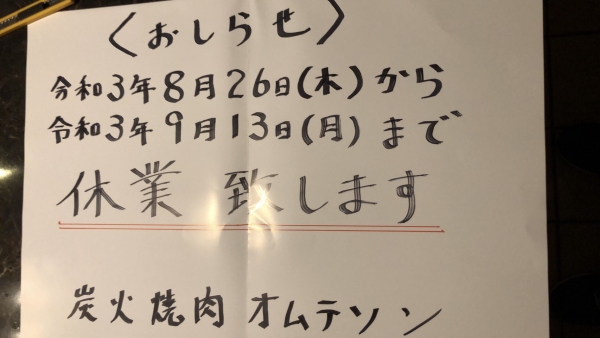 〈おしらせ〉
令和3年8月26日(木)から
令和3年9月13日(月)まで
休業 致します
炭火焼肉 オムテソン